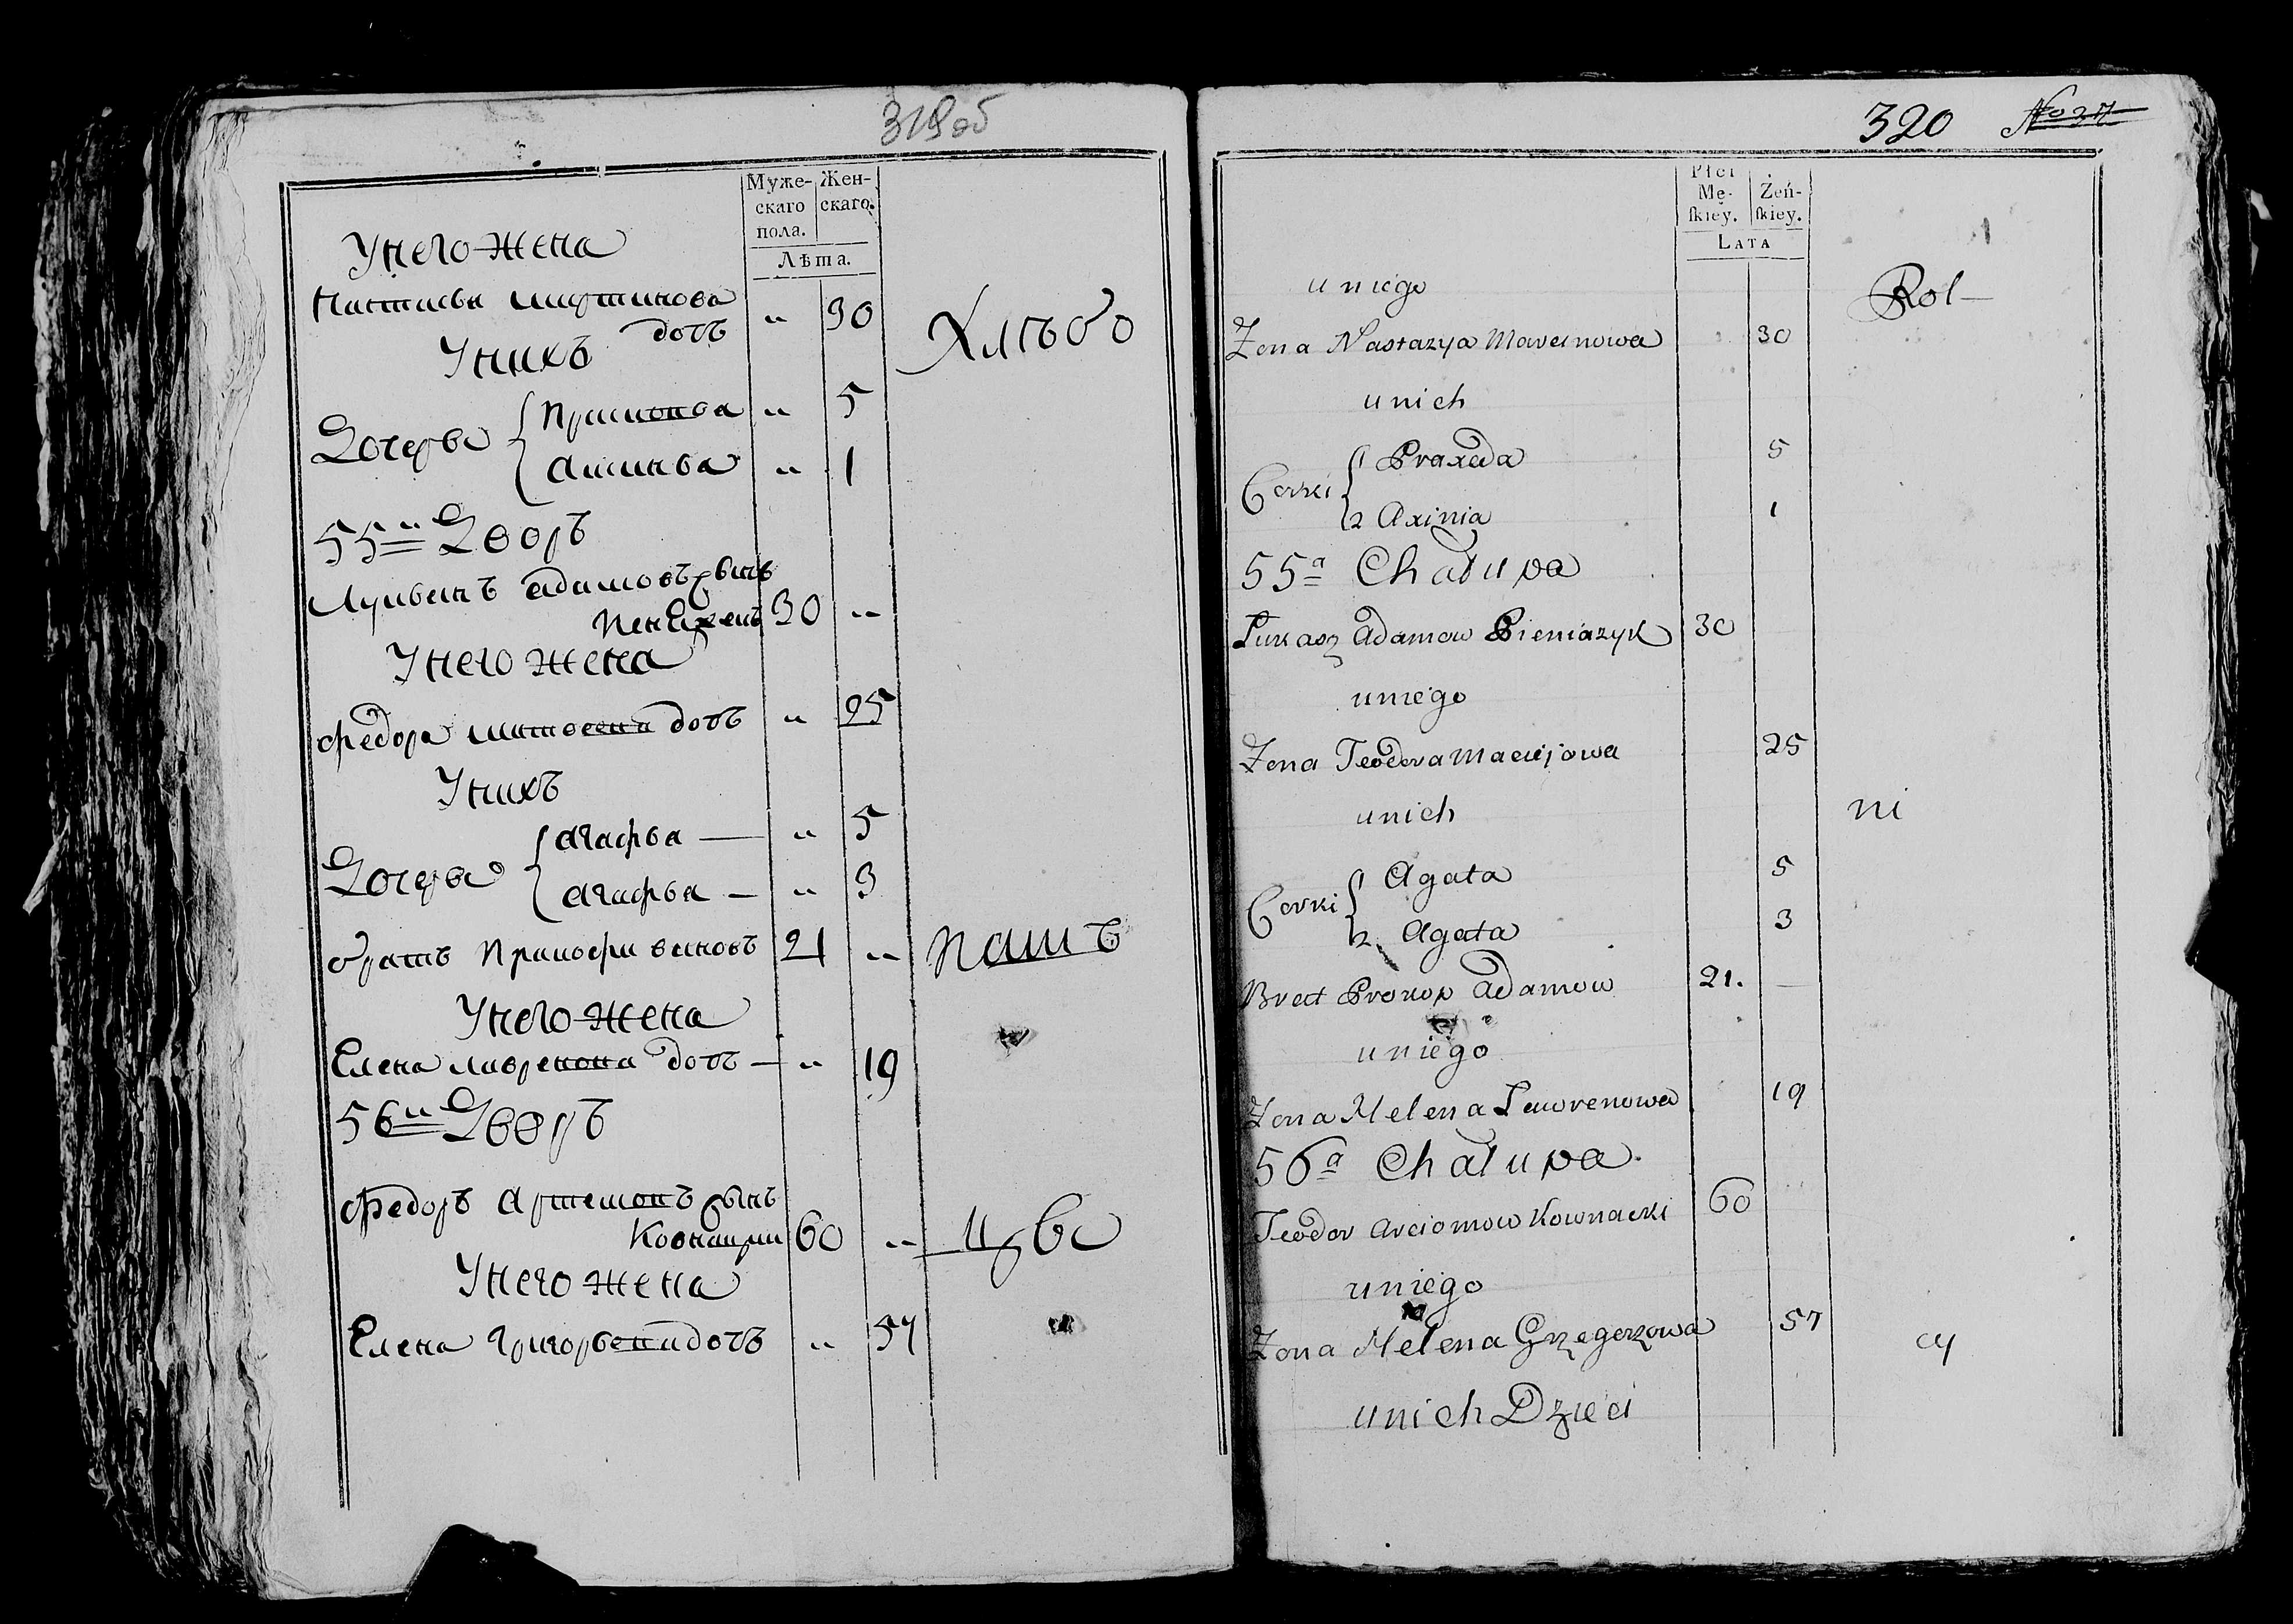 319об
Муже- Жен-
скаго скаго.
пола.
Лѣта.
У него жена
Настасья Мартинова
дочь " 30
Хлѣбо
У нихъ
Дочерьи Прасковья " 5
Аксинья " 1
55й Дворъ
Лукьянъ Адамовъ сынъ
30 "
У него жена
Федора Матвеева дочь " 25
У нихъ
Дочерьи Агафья — " 5
Агафья — " 3
братъ Прокофи 21 "
пашъ
У него жена
Елена Лавренова дочь — " 19
56й Дворъ
Федоръ Артемовъ сынъ
Ковнацки 60 "
цы
У него жена
Елена Григорьева дочь " 57
320 No 37
Płci
Mę- Żeń-
ſkiey. ſkiey.
LATA
u niego
Rol-
Zona Nastazya Marcinowa 30
u nich
Corki 1 Praxeda 5
2 Axinia 1
55a Chałupa
Łukasz Adamow Pieniazyk 30
u niego
Zona Teodora Maciejowa 25
u nich
ni
Corki 1 Agata 5
2 Agata 3
Brat Prokop Adamow 21. —
u niego
Zona Helena Lawrenowa 19
56a Chałupa
Teodor Arciomow Kownacki 60
u niego
Zona Helena Grzegorzowa 57
cy
u nich Dzieci